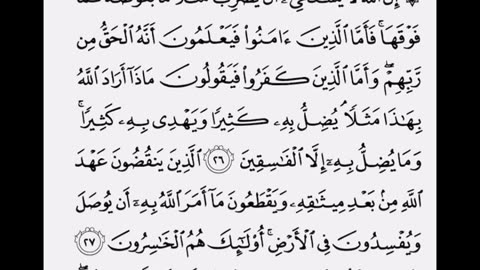 إِنَّ ٱللَّهَ لَا يَسْتَحْىِۦٓ أَن يَضْرِبَ مَثَلًا مَّا بَعُوضَةً فَمَا
فَوْقَهَا ۚ فَأَمَّا ٱلَّذِينَ ءَامَنُوا۟ فَيَعْلَمُونَ أَنَّهُ ٱلْحَقُّ مِن
رَّبِّهِمْ ۖ وَأَمَّا ٱلَّذِينَ كَفَرُوا۟ فَيَقُولُونَ مَاذَآ أَرَادَ ٱللَّهُ
بِهَـٰذَا مَثَلًا ۘ يُضِلُّ بِهِۦ كَثِيرًا وَيَهْدِى بِهِۦ كَثِيرًا ۚ
وَمَا يُضِلُّ بِهِۦٓ إِلَّا ٱلْفَـٰسِقِينَ ٢٦ ٱلَّذِينَ يَنقُضُونَ عَهْدَ
ٱللَّهِ مِنۢ بَعْدِ مِيثَـٰقِهِۦ وَيَقْطَعُونَ مَآ أَمَرَ ٱللَّهُ بِهِۦٓ أَن يُوصَلَ
وَيُفْسِدُونَ فِى ٱلْأَرْضِ ۚ أُو۟لَـٰٓئِكَ هُمُ ٱلْخَـٰسِرُونَ ٢٧